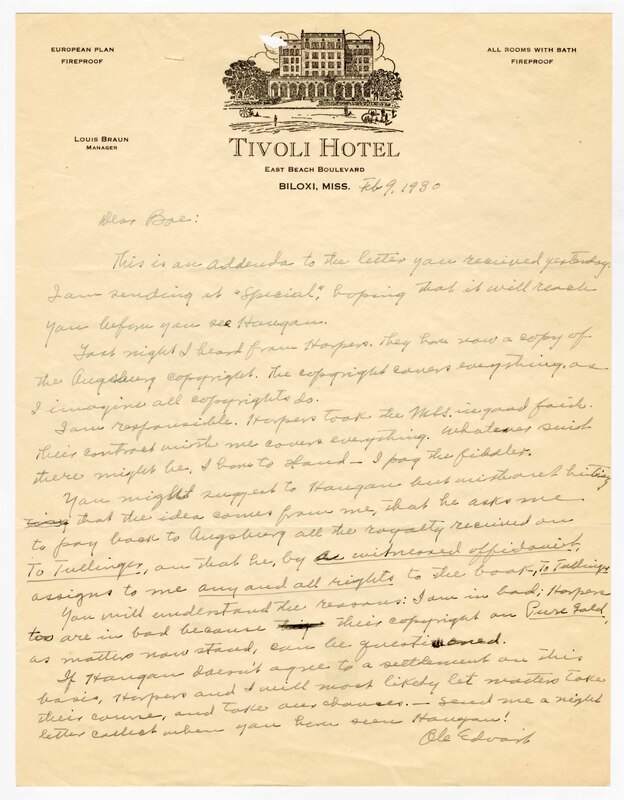 EUROPEAN PLAN
FIREPROOF
ALL ROOMS WITH BATH
FIREPROOF
LOUIS BRAUN
MANAGER
TIVOLI HOTEL
EAST BEACH BOULEVARD
BILOXI, MISS. Feb 9, 1930
Dear Boe:
This is an addenda to the letter you received yesterday.
I am sending it "Special", hoping that it will reach
you before you see Haugan.
Last night I heard from Harpers. They have now a copy of
the Augsburg copyright. The copyright covers everything, as
I imagine all copyrights do.
I am responsible. Harpers took the MSS. in good faith.
Their contract with me covers everything. Whatever suit
there might be, I have to stand — I pay the fiddler.
You might suggest to Haugan but without hinting
that the idea comes from me, that he asks me
to pay back to Augsburg all the royalty received on
To Tullinger, on that he, by a witnessed affidavit,
assigns to me any and all rights to the book, To Tullinger
You will understand the reasons: I am in bad; Harpers
too are in bad because their copyright on Pure Gold,
as matters now stand, can be questioned.
If Haugan doesn't agree to a settlement on this
basis, Harpers and I will most likely let matters take
their course, and take our chances. — Send me a night
letter collect when you have seen Haugan!
Ole Edvart